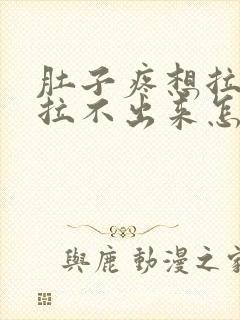 肚子疼想拉
拉不出来怎
與鹿動漫之家